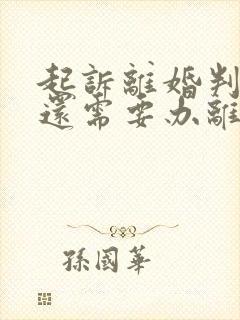 起訴離婚判
還需要办離
孫國華